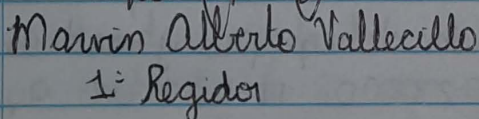 Marvin Alberto Vallecillo
1: Regidor